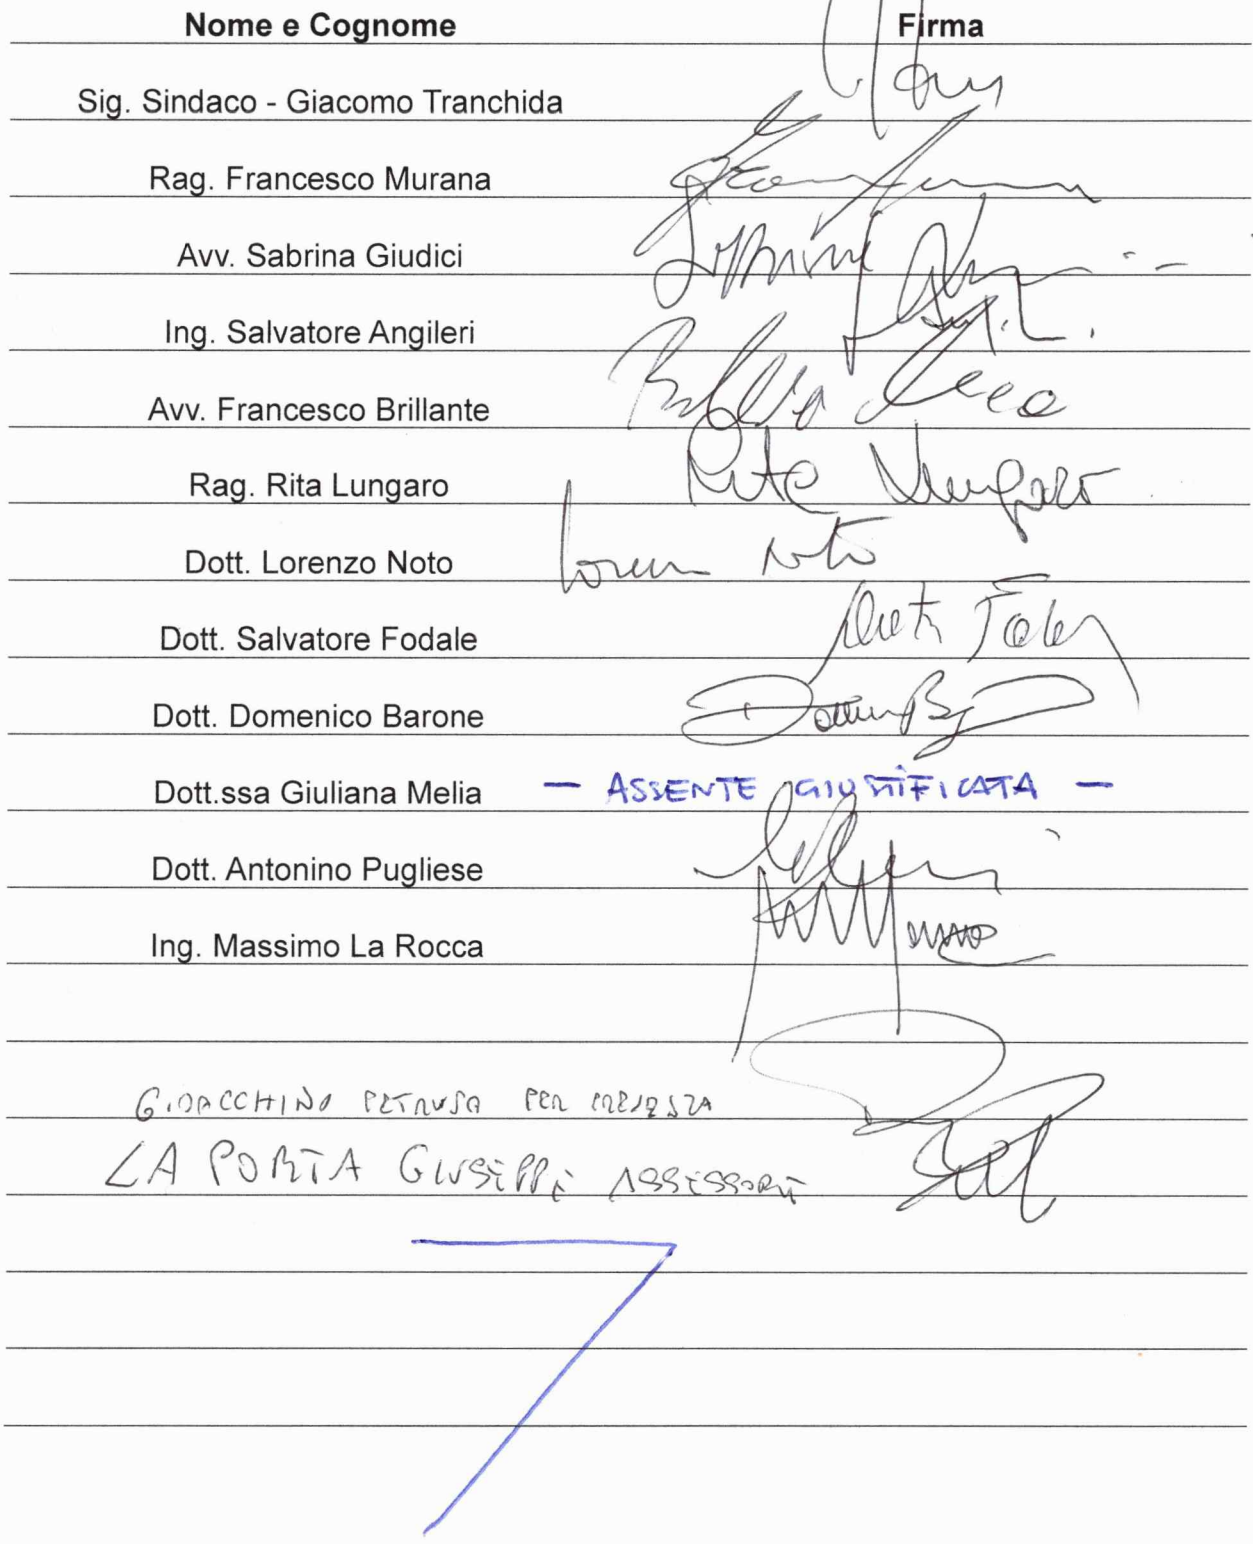 Nome e Cognome Firma
Sig. Sindaco - Giacomo Tranchida
Rag. Francesco Murana
Avv. Sabrina Giudici
Ing. Salvatore Angileri
Avv. Francesco Brillante
Rag. Rita Lungaro Rita Lungaro
Dott. Lorenzo Noto Noto
Dott. Salvatore Fodale
Dott. Domenico Barone
Dott.ssa Giuliana Melia — ASSENTE GIUSTIFICATA —
Dott. Antonino Pugliese
Ing. Massimo La Rocca
GIOACCHINO PETRUSA PER PRESENZA
LA PORTA GIUSEPPE ASSESSORE